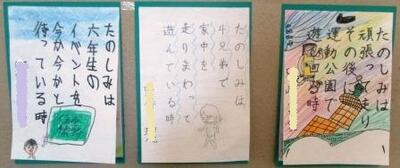 たのしみは
六年生の
イベントを
今か今かと
待っている時
たのしみは
4兄弟で
家中を
走りまわって
遊んでいる時
たのしみは
頑張って走り
その後に
運動公園で
遊び回る時